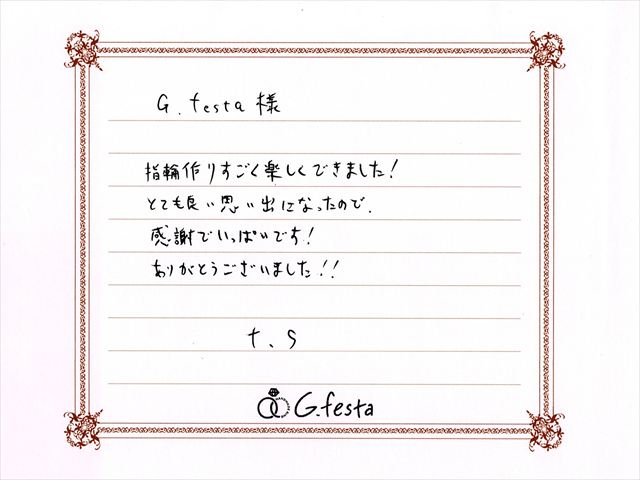 G.festa様
指輪作りすごく楽しくできました!
とても良い思い出になったので、
感謝でいっぱいです!
ありがとうございました!!
t.s
G.festa